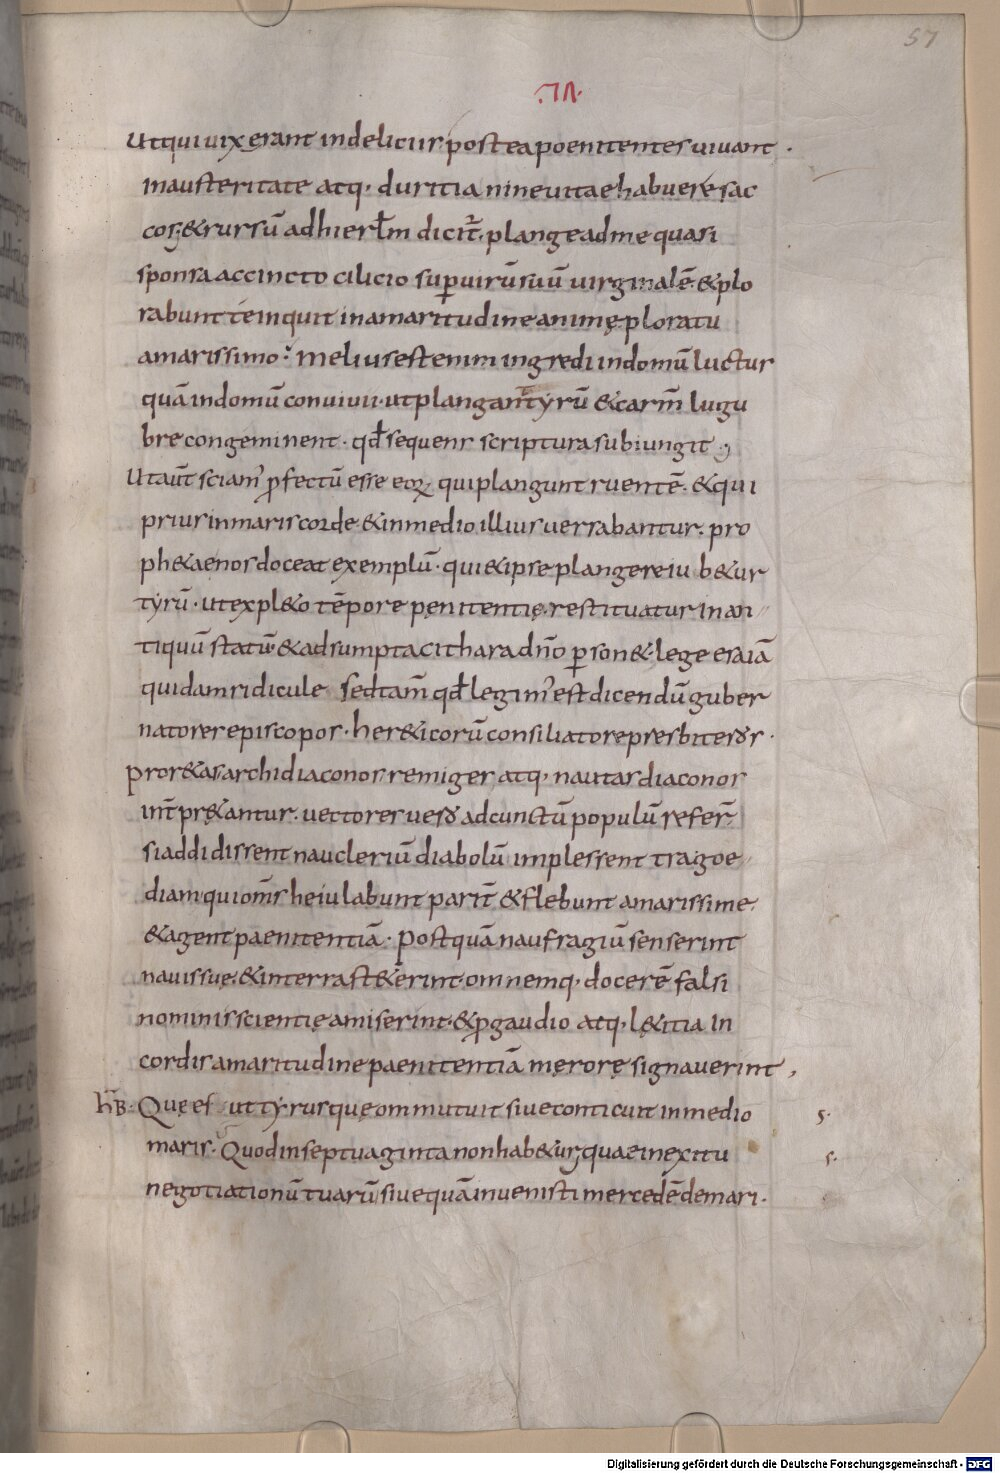 57
.VIII.
Ut qui vixerant in deliciis postea poenitentes vivant .
in austeritate atq; duritia ninevitae habuere sac
cos; & rursū ad hierłm dicit̄, plange ad me quasi
sponsa accincto cilicio sup virū suū virginalē & plo
rabunt te inquit in amaritudine animę ploratu
amarissimo. melius est enim ingredi in domū luctus
quā in domū convivii. ut plangant tyrū & carm̄ lugu
bre congeminent. qđ sequens scriptura subiungit;
Ut aūt sciam' pfectū esse eoꝝ qui plangunt ruentē. & qui
prius in maris corde & in medio illius versabantur. pro
ph&a e nos doceat exemplū. qui & ipse plangere iub&ur
tyrū. ut expl&o tēpore pęnitentię restituatur in an
tiquū statū & adsumpta cithara dn̄o pson&. lege esaiā
quidam ridicule sed tam̄ qđ legim' est dicendū guber
natores episcopos. her&icorū consiliatores presbiteros.
pror&as archidiaconos remiges atq; nautas diaconos
int̄pr&antur. vectores vero ad cunctū populū refer̄
si addidissent naucleriū diabolū implessent tragoe
diam qui om̄s heiulabunt parit̄ & flebunt amarissime.
& agent paenitentiā. postquā naufragiū senserint
navis suę. & in terra st&erint. omnemq; docerē falsi
nominis scientię amiserint. & p gaudio atq; lętitia in
cordis amaritudine paenitentiā męrore signaverint,
h̄B. Quę es ut tyrus que ommutuit sive conticuit in medio s.
maris. Quod in septuaginta non hab&ur; quae in exitu s.
negotiationū tuarū sive quā invenisti mercedē de mari.
Digitalisierung gefördert durch die Deutsche Forschungsgemeinschaft - DFG